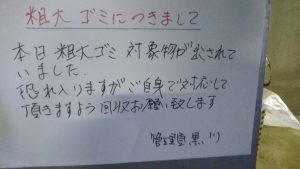 粗大ゴミにつきまして
本日粗大ゴミ対象物が出されて
いました.
恐れ入りますがご自身で対応して
頂きますよう回収お願い致します
管理室 黒川